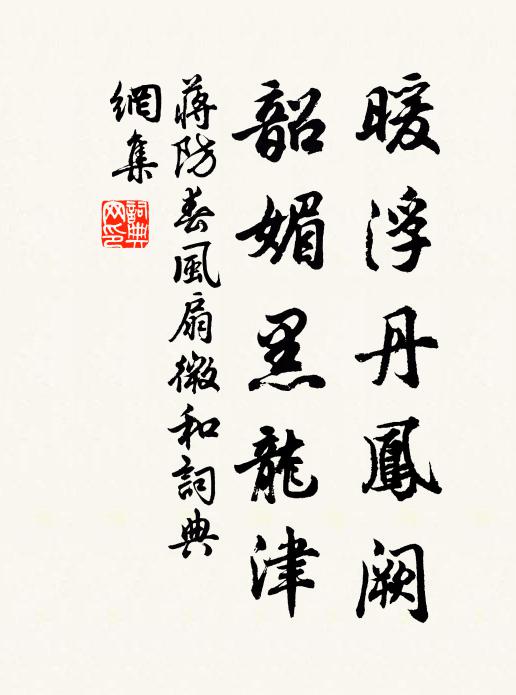 暖浮丹鳳闕
韶媚黑龍津
蔣防春風扇微和詞典
網集
詞典
网印